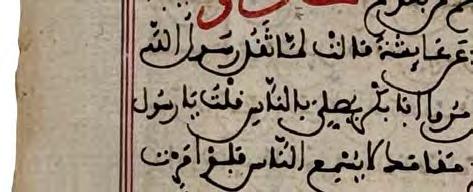 عن عايشة قالت لما ثقل رسول الله
مروا ابا بكر يصلي بالناس فلت يا رسول
مقامك لا يسمع الناس فلو امرت